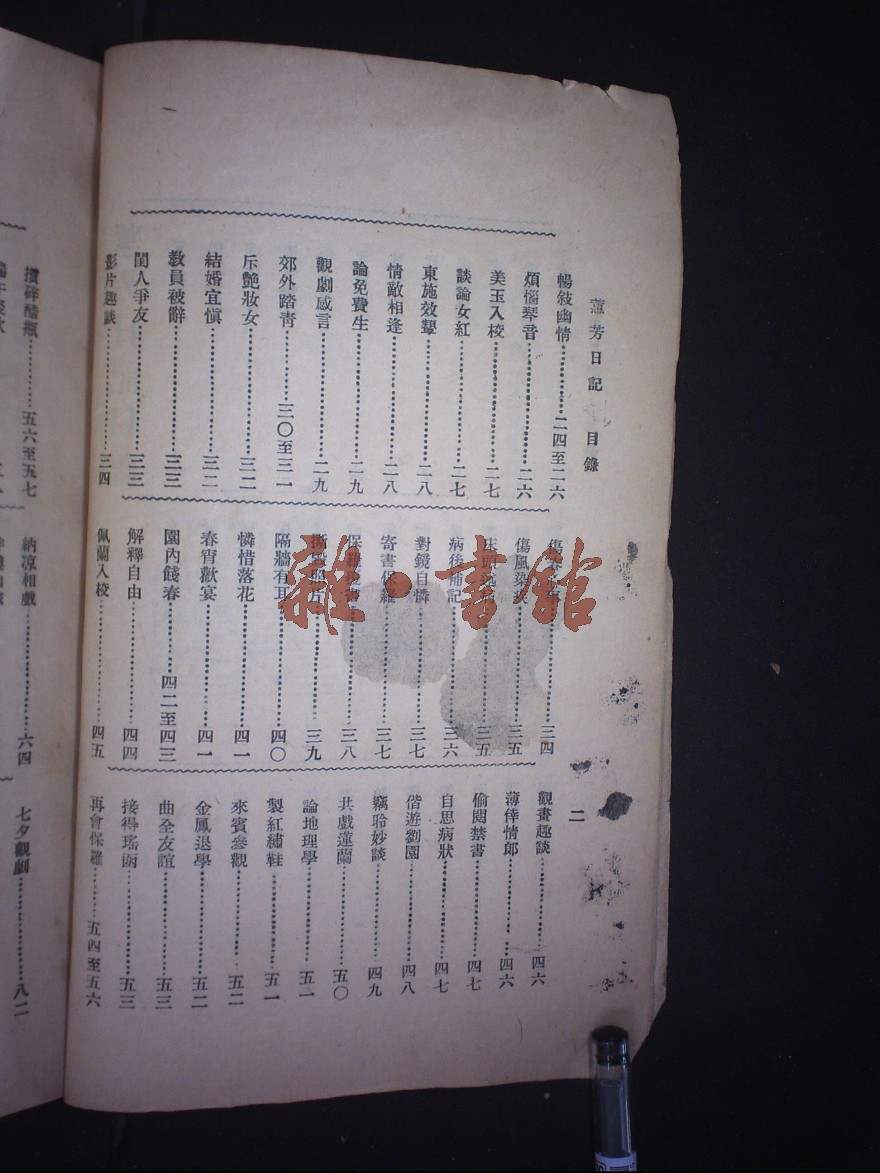 蕙芳日記 目錄
暢敍幽情 二四至二六
煩惱琴音 二六
美玉入校 二七
談論女紅 二七
東施效顰 二八
情敵相逢 二八
論免費生 二九
觀劇感言 二九
郊外踏靑 三〇至三一
斥艶妝女 三二
結婚宜愼 三二
敎員被辭 三三
閨人爭友 三三
影片趣談 三四
三四
傷風染疾 三五
三五
病後補記 三六
對鏡自憐 三七
寄書保羅 三七
保羅 三八
撕毀照片 三九
隔牆有耳 四〇
憐惜落花 四一
春宵歡宴 四一
園內餞春 四二至四三
解釋自由 四四
佩蘭入校 四五
二
觀畫趣談 四六
薄倖情郎 四六
偷閱禁書 四七
自思病狀 四七
偕遊劉園 四八
竊聆妙談 四九
共戲蓮蘭 五〇
論地理學 五一
製紅繡鞋 五一
來賓參觀 五二
金鳳退學 五二
曲全友誼 五三
接得瑤函 五三
再會保羅 五四至五六
摜碎醋瓶 五六至五七
納凉相戲 六四
七夕觀劇 八二
雜·書館